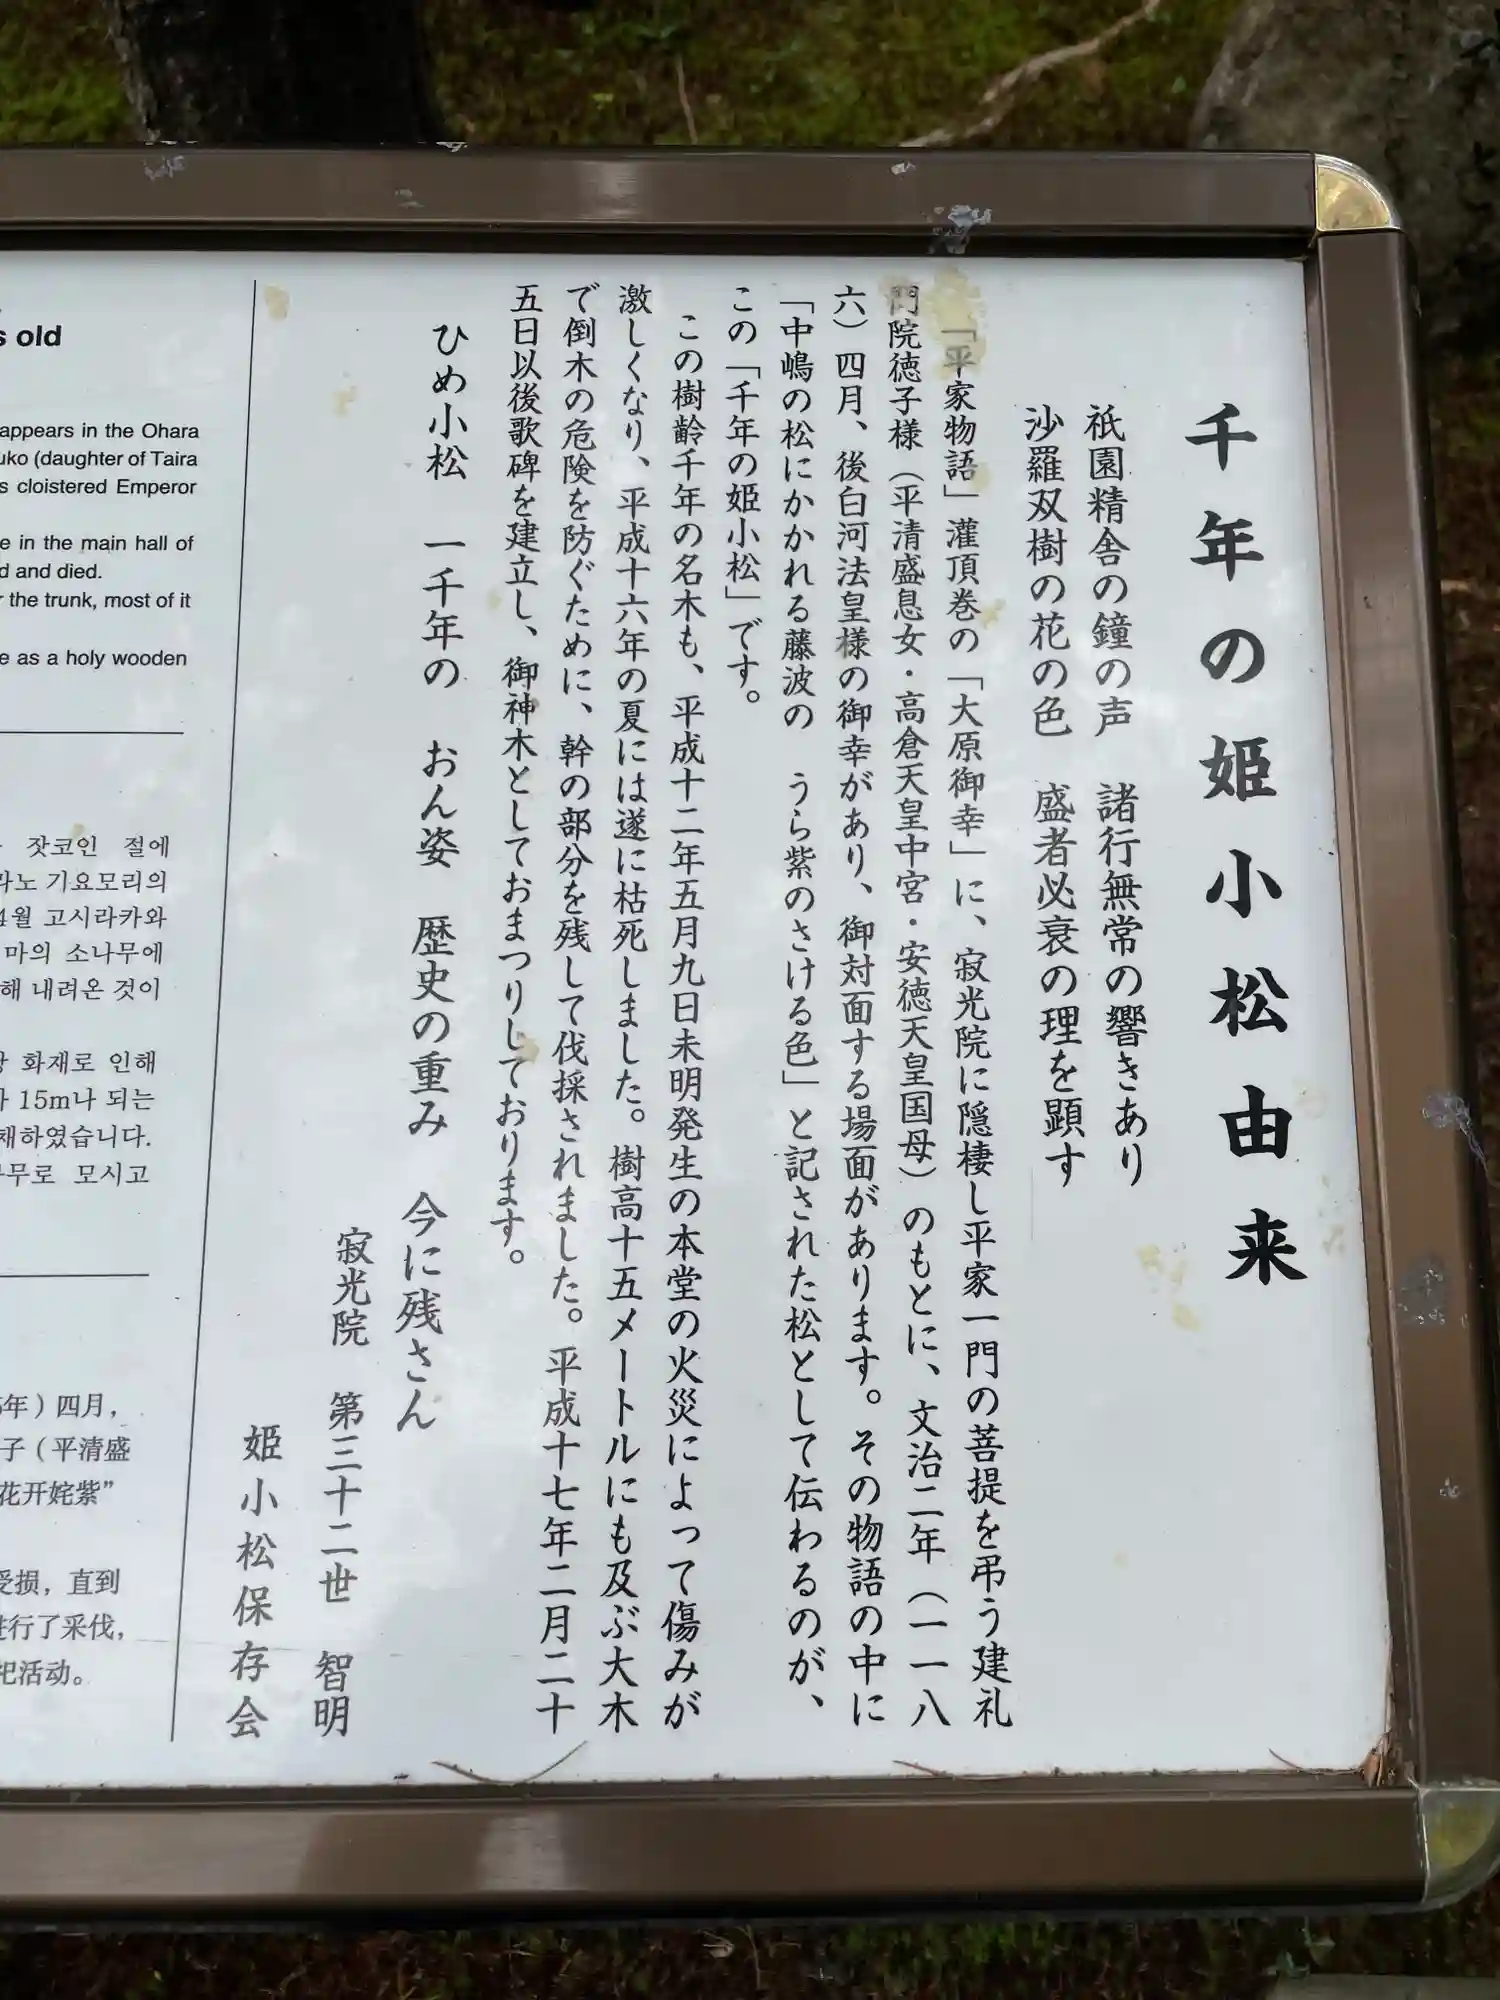 千年の姫小松由来
祇園精舎の鐘の声 諸行無常の響きあり
沙羅双樹の花の色 盛者必衰の理を顕す
「平家物語」灌頂巻の「大原御幸」に、寂光院に隠棲し平家一門の菩提を弔う建礼
門院徳子様（平清盛息女・高倉天皇中宮・安徳天皇国母）のもとに、文治二年（一一八
六）四月、後白河法皇様の御幸があり、御対面する場面があります。その物語の中に
「中嶋の松にかかれる藤波の うら紫のさける色」と記された松として伝わるのが、
この「千年の姫小松」です。
この樹齢千年の名木も、平成十二年五月九日未明発生の本堂の火災によって傷みが
激しくなり、平成十六年の夏には遂に枯死しました。樹高十五メートルにも及ぶ大木
で倒木の危険を防ぐために、幹の部分を残して伐採されました。平成十七年二月二十
五日以後歌碑を建立し、御神木としておまつりしております。
ひめ小松 一千年の おん姿 歴史の重み 今に残さん
寂光院 第三十二世 智明
姫小松保存会
s old
appears in the Ohara
uko (daughter of Taira
s cloistered Emperor
e in the main hall of
d and died.
r the trunk, most of it
e as a holy wooden
잣코인 절에
라노 기요모리의
4월 고시라카와
마의 소나무에
해 내려온 것이
화재로 인해
15m나 되는
채하였습니다.
무로 모시고
年）四月，
子（平清盛
花开姹紫”
受损，直到
进行了采伐，
祀活动。